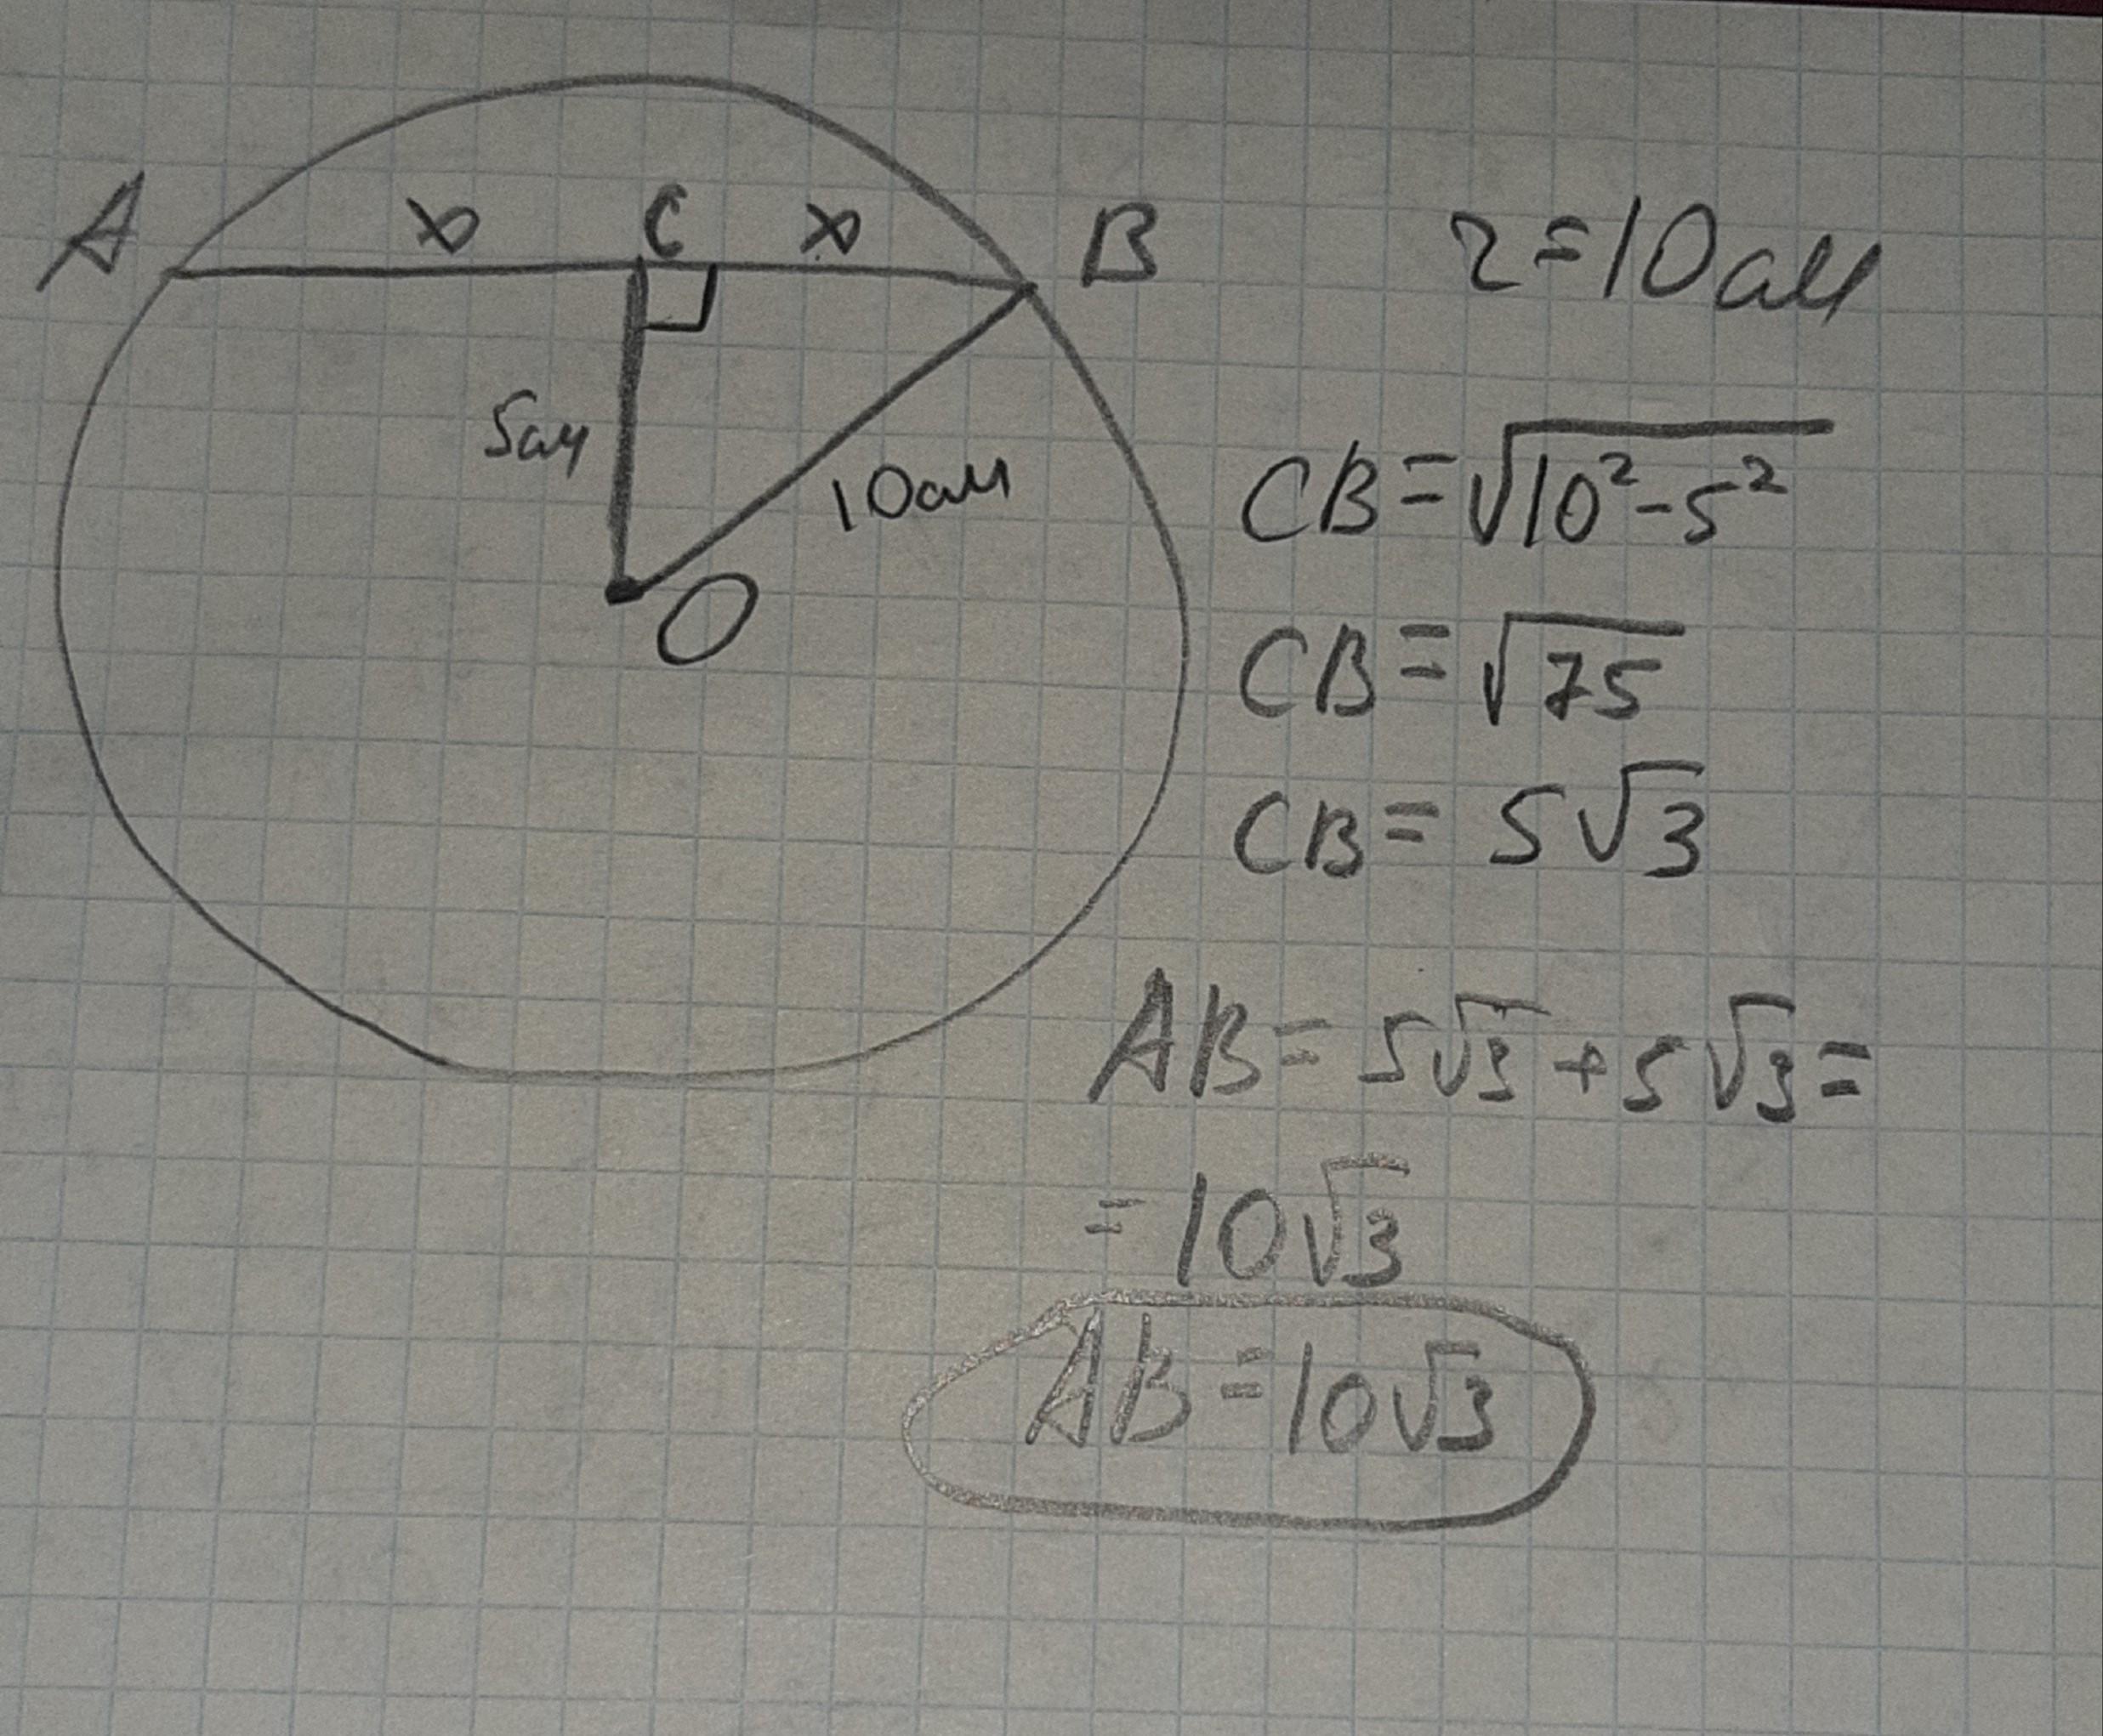 A x C x B
r=10см
5см
10см
O
CB=√10²-5²
CB=√75
CB= 5√3
AB= 5√3+5√3=
= 10√3
AB=10√3